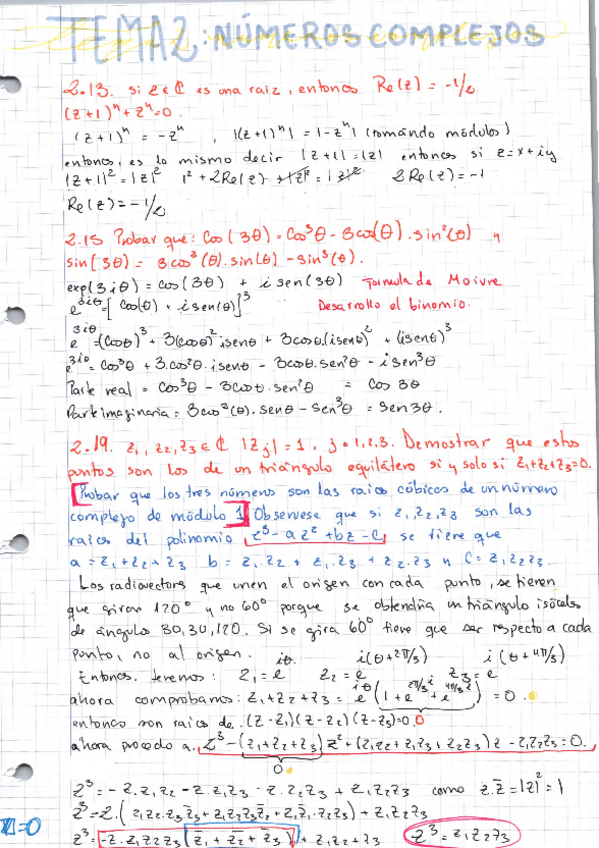 TEMA 2: NÚMEROS COMPLEJOS
2.13. si z ∈ ℂ es una raiz, entonces Re(z) = -1/2
(z+1)ⁿ + zⁿ = 0.
(z+1)ⁿ = -zⁿ , |(z+1)ⁿ| = |-zⁿ| (tomando módulos)
entonces, es lo mismo decir |z+1| = |z| entonces si z = x+iy
|z+1|² = |z|² 1² + 2Re(z) + |z|² = |z|² 2Re(z) = -1
Re(z) = -1/2
2.15 Probar que: Cos(3θ) = Cos³θ - 3cos(θ).sin²(θ) y
sin(3θ) = 3cos²(θ).sin(θ) - sin³(θ).
exp(3iθ) = cos(3θ) + i sen(3θ) Formula de Moivre
e^3iθ = [cos(θ) + i sen(θ)]³ Desarrollo el binomio.
e^3iθ = (cosθ)³ + 3(cosθ)² i senθ + 3cosθ.(i senθ)² + (i senθ)³
e^3iθ = cos³θ + 3.cos²θ.i senθ - 3cosθ.sen²θ - i sen³θ
Parte real = cos³θ - 3cosθ.sen²θ = Cos 3θ
Parte imaginaria = 3cos²(θ).senθ - sen³θ = sen3θ.
2.19. z₁, z₂, z₃ ∈ ℂ |zⱼ| = 1, j = 1,2,3. Demostrar que estos
puntos son los de un triángulo equilátero si y solo si z₁+z₂+z₃=0.
[Probar que los tres números son las raices cúbicas de un número
complejo de módulo 1] Observese que si z₁, z₂, z₃ son las
raices del polinomio z³ - az² + bz - c, se tiene que
a = z₁ + z₂ + z₃ b = z₁.z₂ + z₁.z₃ + z₂.z₃ y c = z₁z₂z₃.
Los radiovectores que unen el origen con cada punto, se tienen
que girar 120° y no 60° porque se obtendría un triángulo isósceles
de ángulos 30,30,120. Si se gira 60° tiene que ser respecto a cada
punto, no al origen.
Entonces tenemos: z₁ = e^iθ z₂ = e^i(θ+2π/3) z₃ = e^i(θ+4π/3)
ahora comprobamos: z₁+z₂+z₃ = e^iθ (1 + e^2π/3i + e^4π/3i) = 0.
entonces son raices de (z-z₁)(z-z₂)(z-z₃)=0
ahora procedo a. z³ - (z₁+z₂+z₃)z² + (z₁z₂ + z₁z₃ + z₂z₃)z - z₁z₂z₃ = 0.
0
z³ = -z.z₁z₂ - z.z₁z₃ - z.z₂z₃ + z₁z₂z₃ como z.z̄ = |z|² = 1
z³ = -z.(z₁z₂.z₃z̄₃ + z₁z₂z₃z̄₂ + z₁z̄₁.z₂z₃) + z₁z₂z₃
z³ = -z.z₁z₂z₃(z̄₁ + z̄₂ + z̄₃) + z₁z₂z₃ z³ = z₁z₂z₃
=0